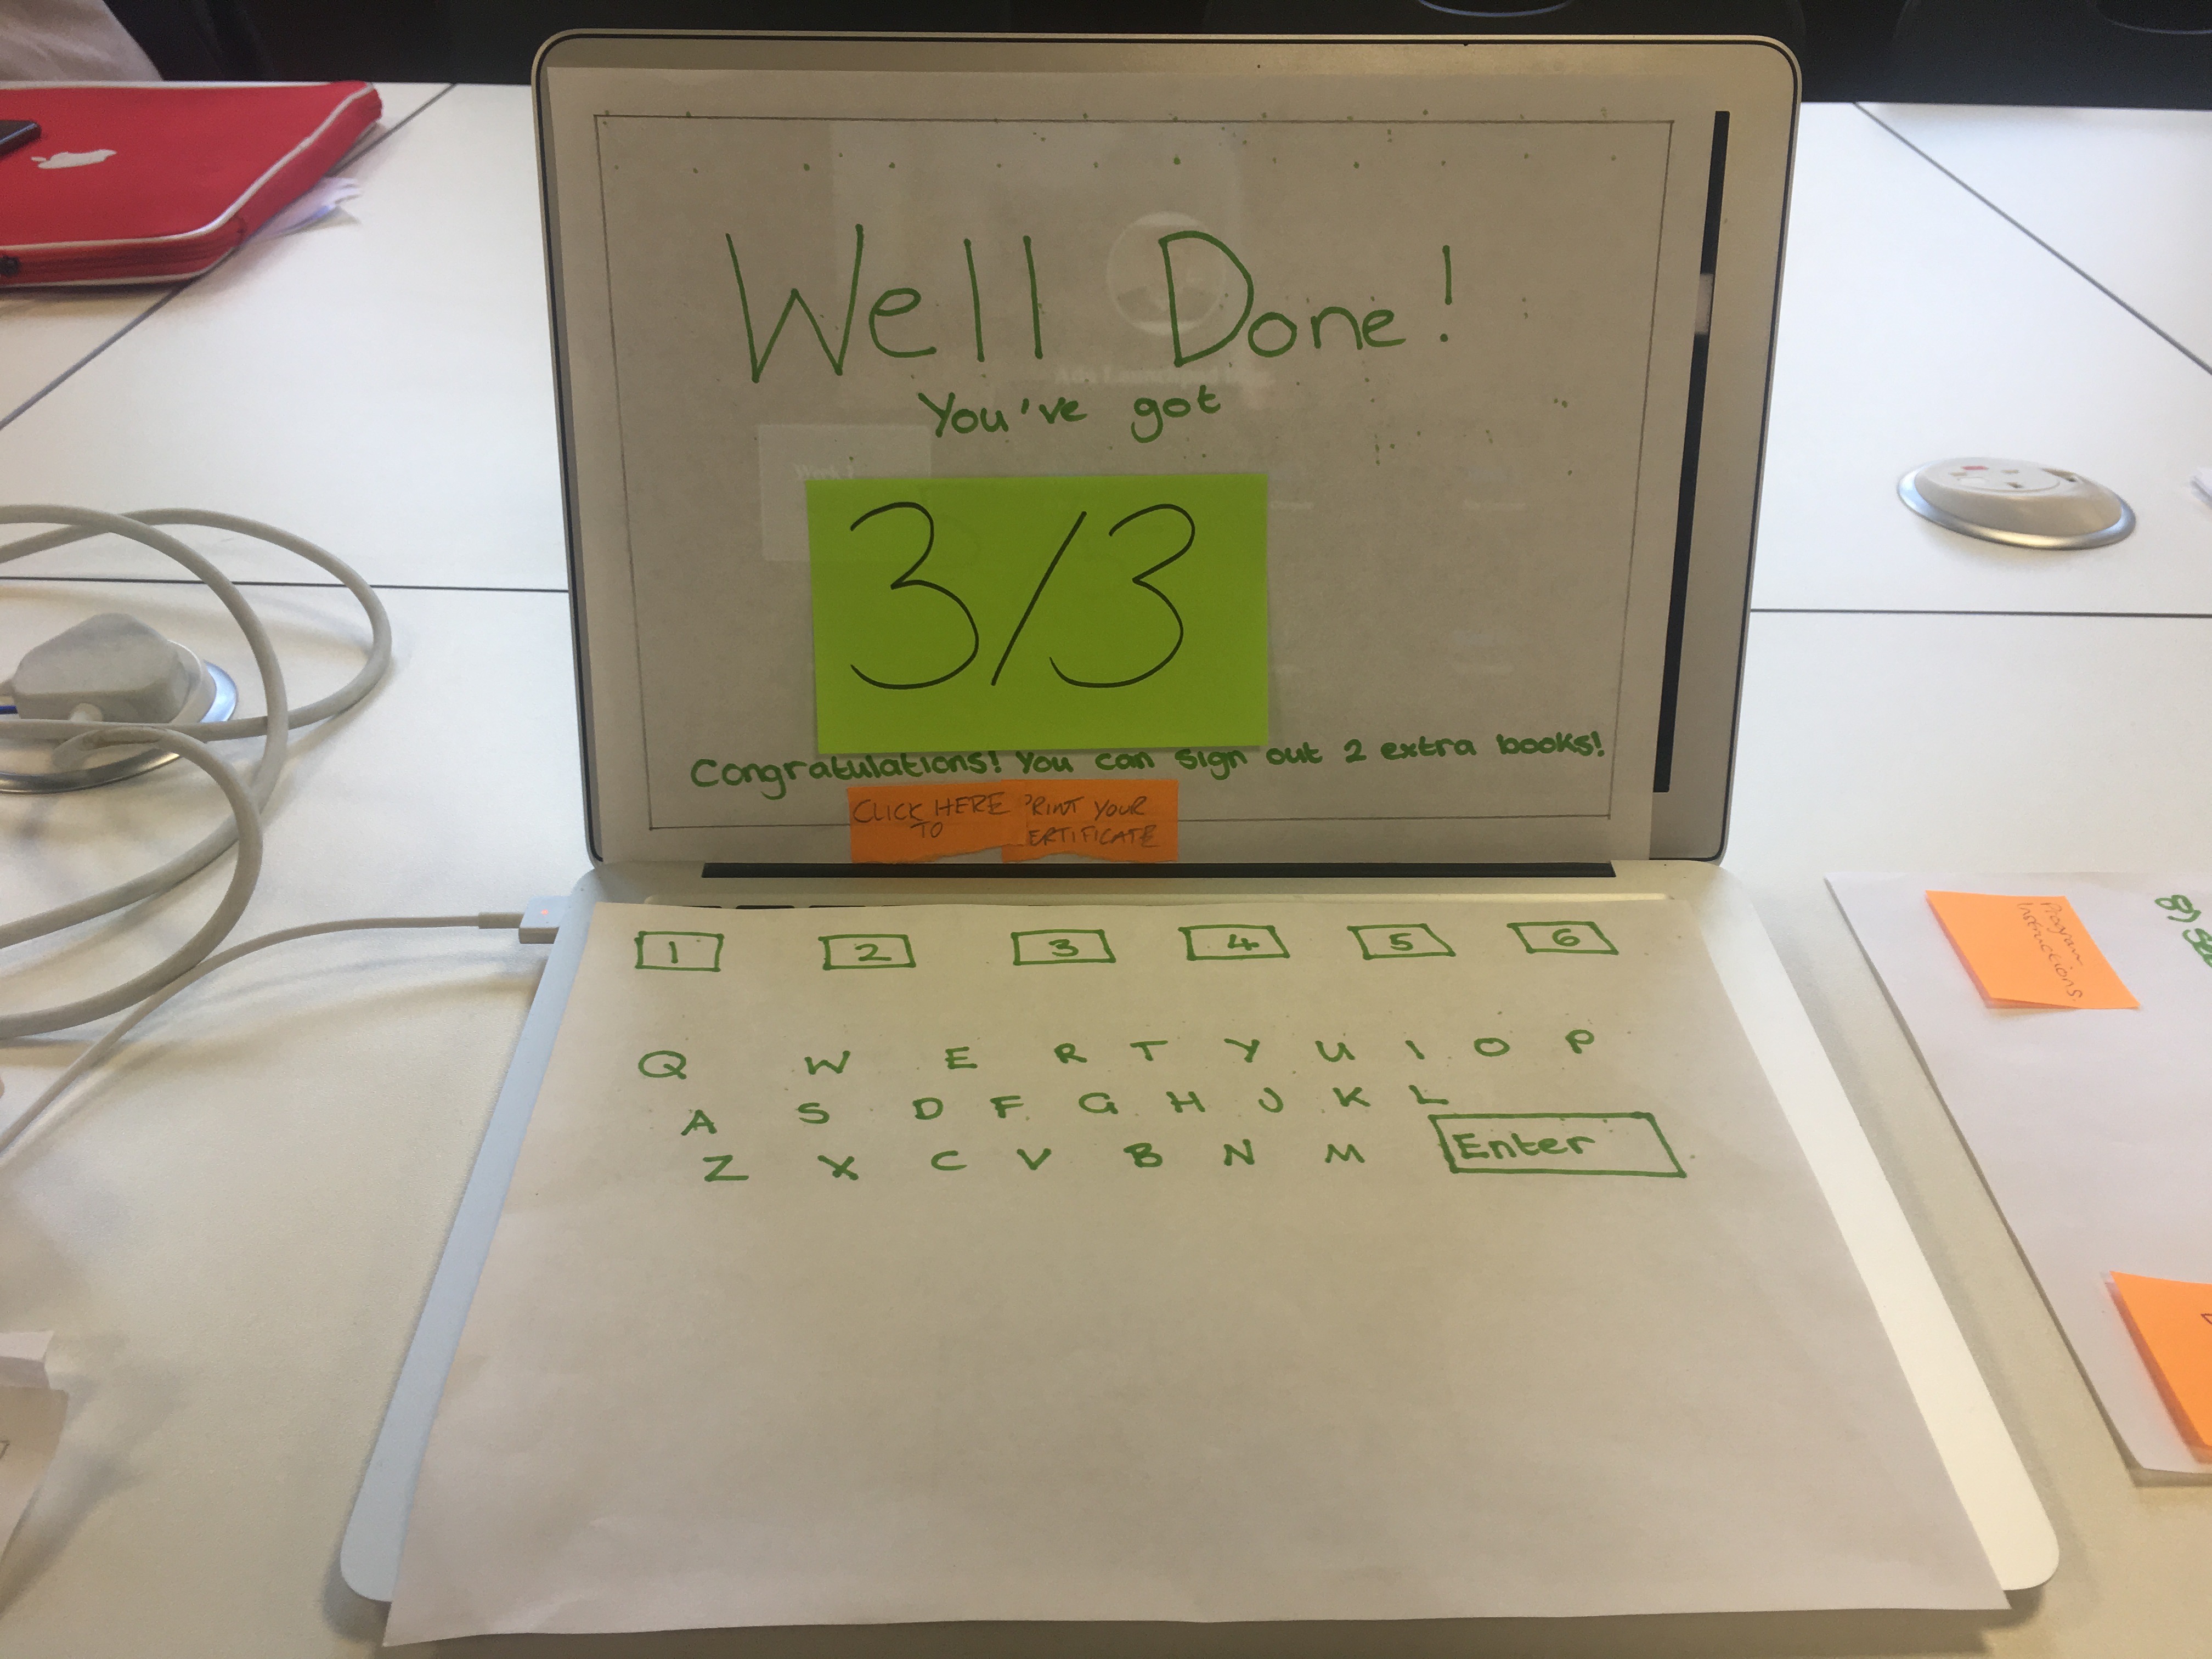 Well Done!
You've got
3/3
Congratulations! You can sign out 2 extra books!
CLICK HERE
TO
RINT YOUR
ERTIFICATE
1 2 3 4 5 6
Q W E R T Y U I O P
A S D F G H J K L
Z X C V B N M Enter
Program
Instructions.